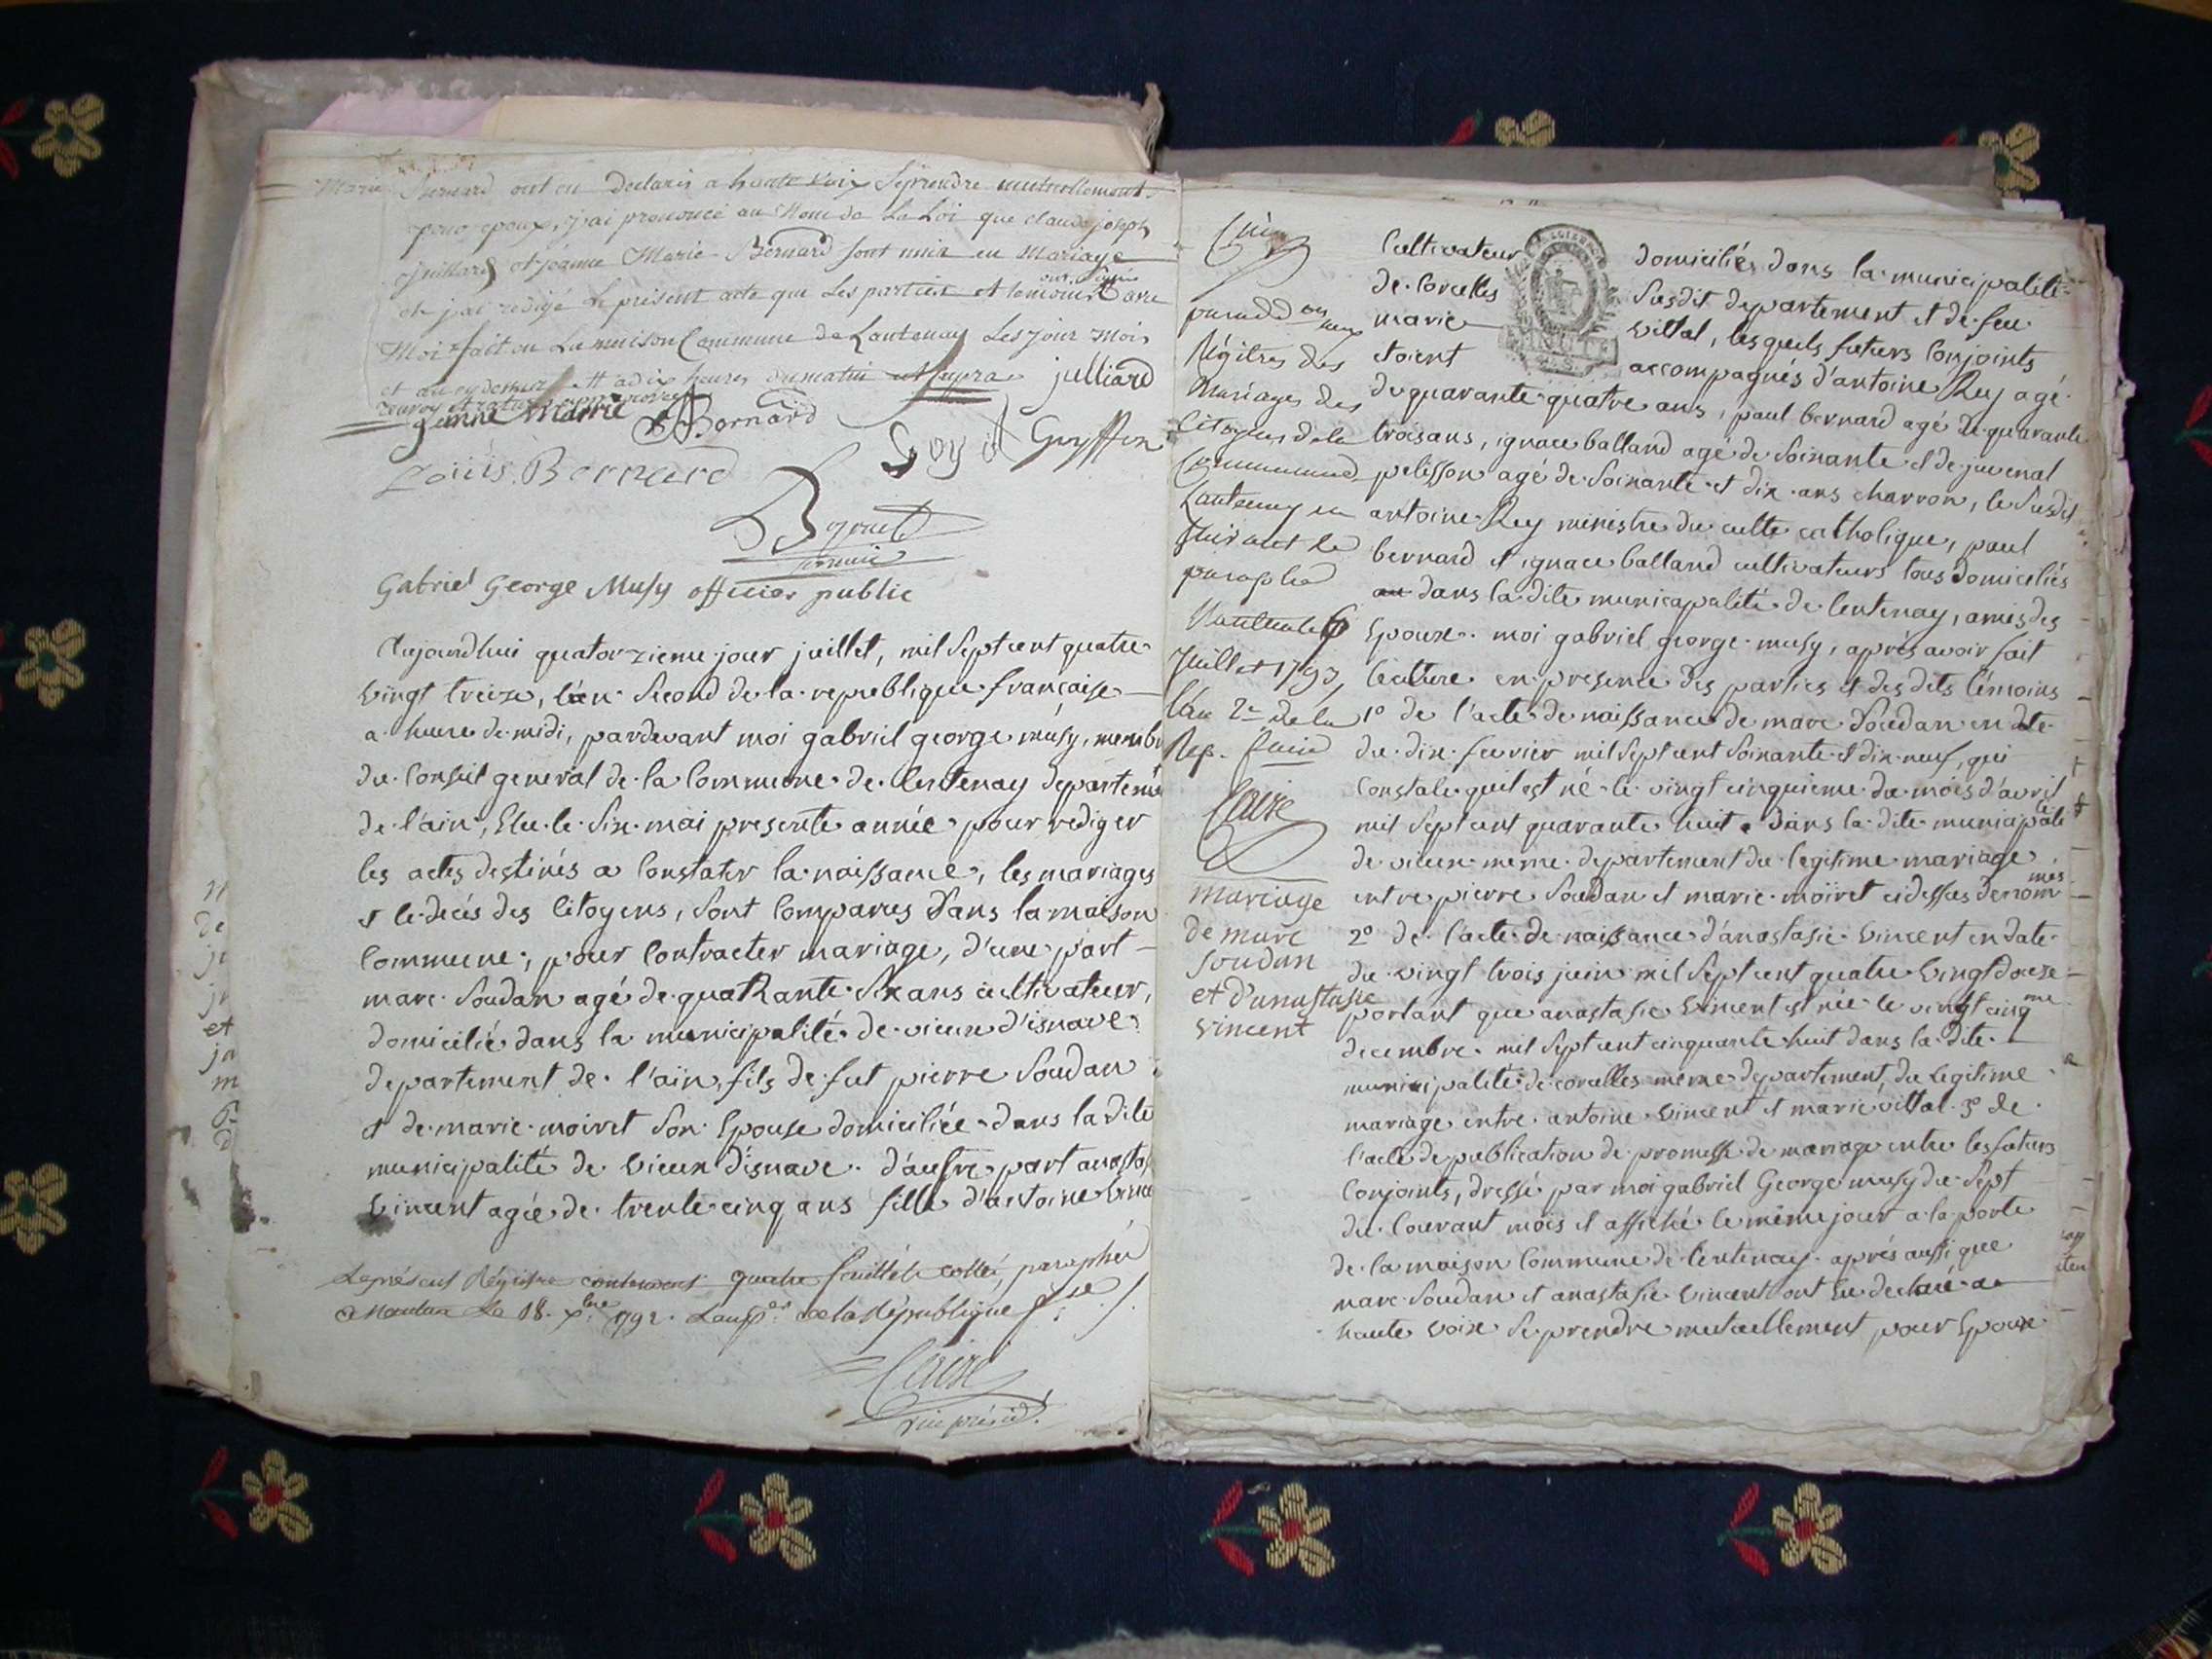 Marie Bernard ont eu Declarés a haute voix Seprendre mutuellement
pour epoux, j'ai prononcé au Nom de La Loi que claude joseph
juillard et jeanne Marie Bernard sont unis en Mariage
et j'ai redigé le présent acte que les parties et temoins ont signé avec
Moi fait en La maison Commune de Lantenay Les jour Mois
et an cy dessus et a dix heures du matin julliard
jeanne Marrie Bernard
Goy Guyffon
Loüis Bernard
Gabriel George Musy officier public
Aujourdhui quatorzieme jour juillet, mil sept cent quatre
vingt treize, l'an second de la republique française
a heure de midi, pardevant moi gabriel george musy, membre
du Conseil general de la Commune de lentenay departeme
de l'ain, Elu le Six mai presente année pour rediger
les actes destinés a Constater la naissance, les mariages
et le decés des Citoyens, sont Comparus dans la maison
Commune, pour Contracter mariage, d'une part
marc Soudan agé de quarante six ans cultivateur,
domicilié dans la municipalité de vieux d'isnave
departement de l'ain, fils de fut pierre Soudan
et de marie moiret Son Epouse domiciliée dans la dite
municipalité de vieux d'isnave. d'autre part anastas
vincent agée de trente cinq ans fille d'antoine vince
Le présent Régistre contenant quatre feuillets cotté, paraphé
a Nantua Le 18 Xbre 1792. L'an 1er de la République fse
Caire
vice présidt
Cultivateur domiciliés dans la municipalité
de Corcelles Susdit departement et de feu
marie vittal, les quels futurs Conjoints
étoient accompagnés d'antoine Rey agé
de quarante quatre ans, paul bernard agé de quarante
trois ans, ignace balland agé de Soixante et de juvenal
pelisson agé de Soixante et dix ans charron, le Susdit
antoine Rey ministre du culte catholique, paul
bernard et ignace balland cultivateurs tous domiciliés
au dans la dite municipalité de lentenay, amis des
Epoux. moi gabriel george musy, aprés avoir fait
lecture en presence des parties et des dits témoins
1º de l'acte de naissance de marc Soudan en date
du dix fevrier mil sept cent soixante et dix neuf, qui
Constate quil est né le vingt cinquieme du mois d'avril
mil sept cent quarante huit dans la dite municipalité
de vieux meme departement du legitime mariage
entre pierre Soudan et marie moiret ci dessus denommés
2º de l'acte de naissance d'anastasie vincent en date
du vingt trois juin mil sept cent quatre vingt douze
portant que anastasie vincent est née le vingt cinqme
decembre mil sept cent cinquante huit dans la dite
municipalité de corcelles même departement, du Legitime
mariage entre antoine vincent et marie vittal 3º de
l'acte de publication de promesse de mariage entre les futurs
Conjoints, dressé par moi gabriel George musy du Sept
du Courant mois et affiché le même jour a la porte
de la maison Commune de lentenay. aprés aussi que
marc Soudan et anastasie vincent ont Eu declaré a
haute voix Se prendre mutuellement pour Epoux
Régitres des
Mariages des
Citoyens de la
Commune de
Lantenay en
suivant le
paraphé
Juillet 1793,
l'an 2e de la
Rep. fsaise
Caire
mariage
de marc
Soudan
et d'anastasie
vincent